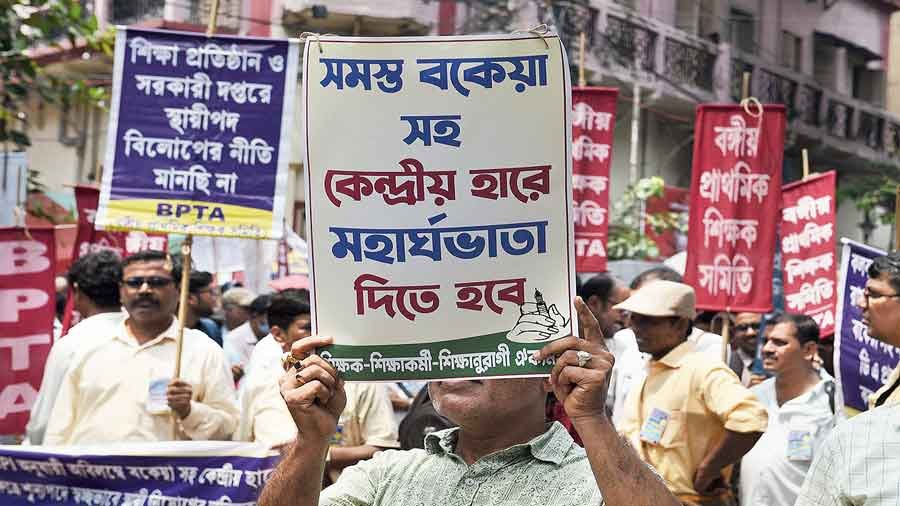 শিক্ষা প্রতিষ্ঠান ও
সরকারী দপ্তরে
স্থায়ীপদ
বিলোপের নীতি
মানছি না
BPTA
সমস্ত বকেয়া
সহ
কেন্দ্রীয় হারে
মহার্ঘভাতা
দিতে হবে
শিক্ষক-শিক্ষাকর্মী-শিক্ষানুরাগী
প্রাথমিক
শিক্ষক
সমিতি
BPTA
বঙ্গীয়
প্রাথমিক
শিক্ষক
সমিতি
বঙ্গীয়
প্রাথমিক
শিক্ষক
সমিতি
BPTA
বকেয়া সহ কেন্দ্রীয়